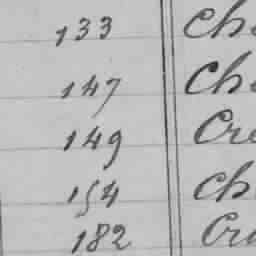 133 Ch
147 Ch
149 Cre
154 Ch
182 Cra